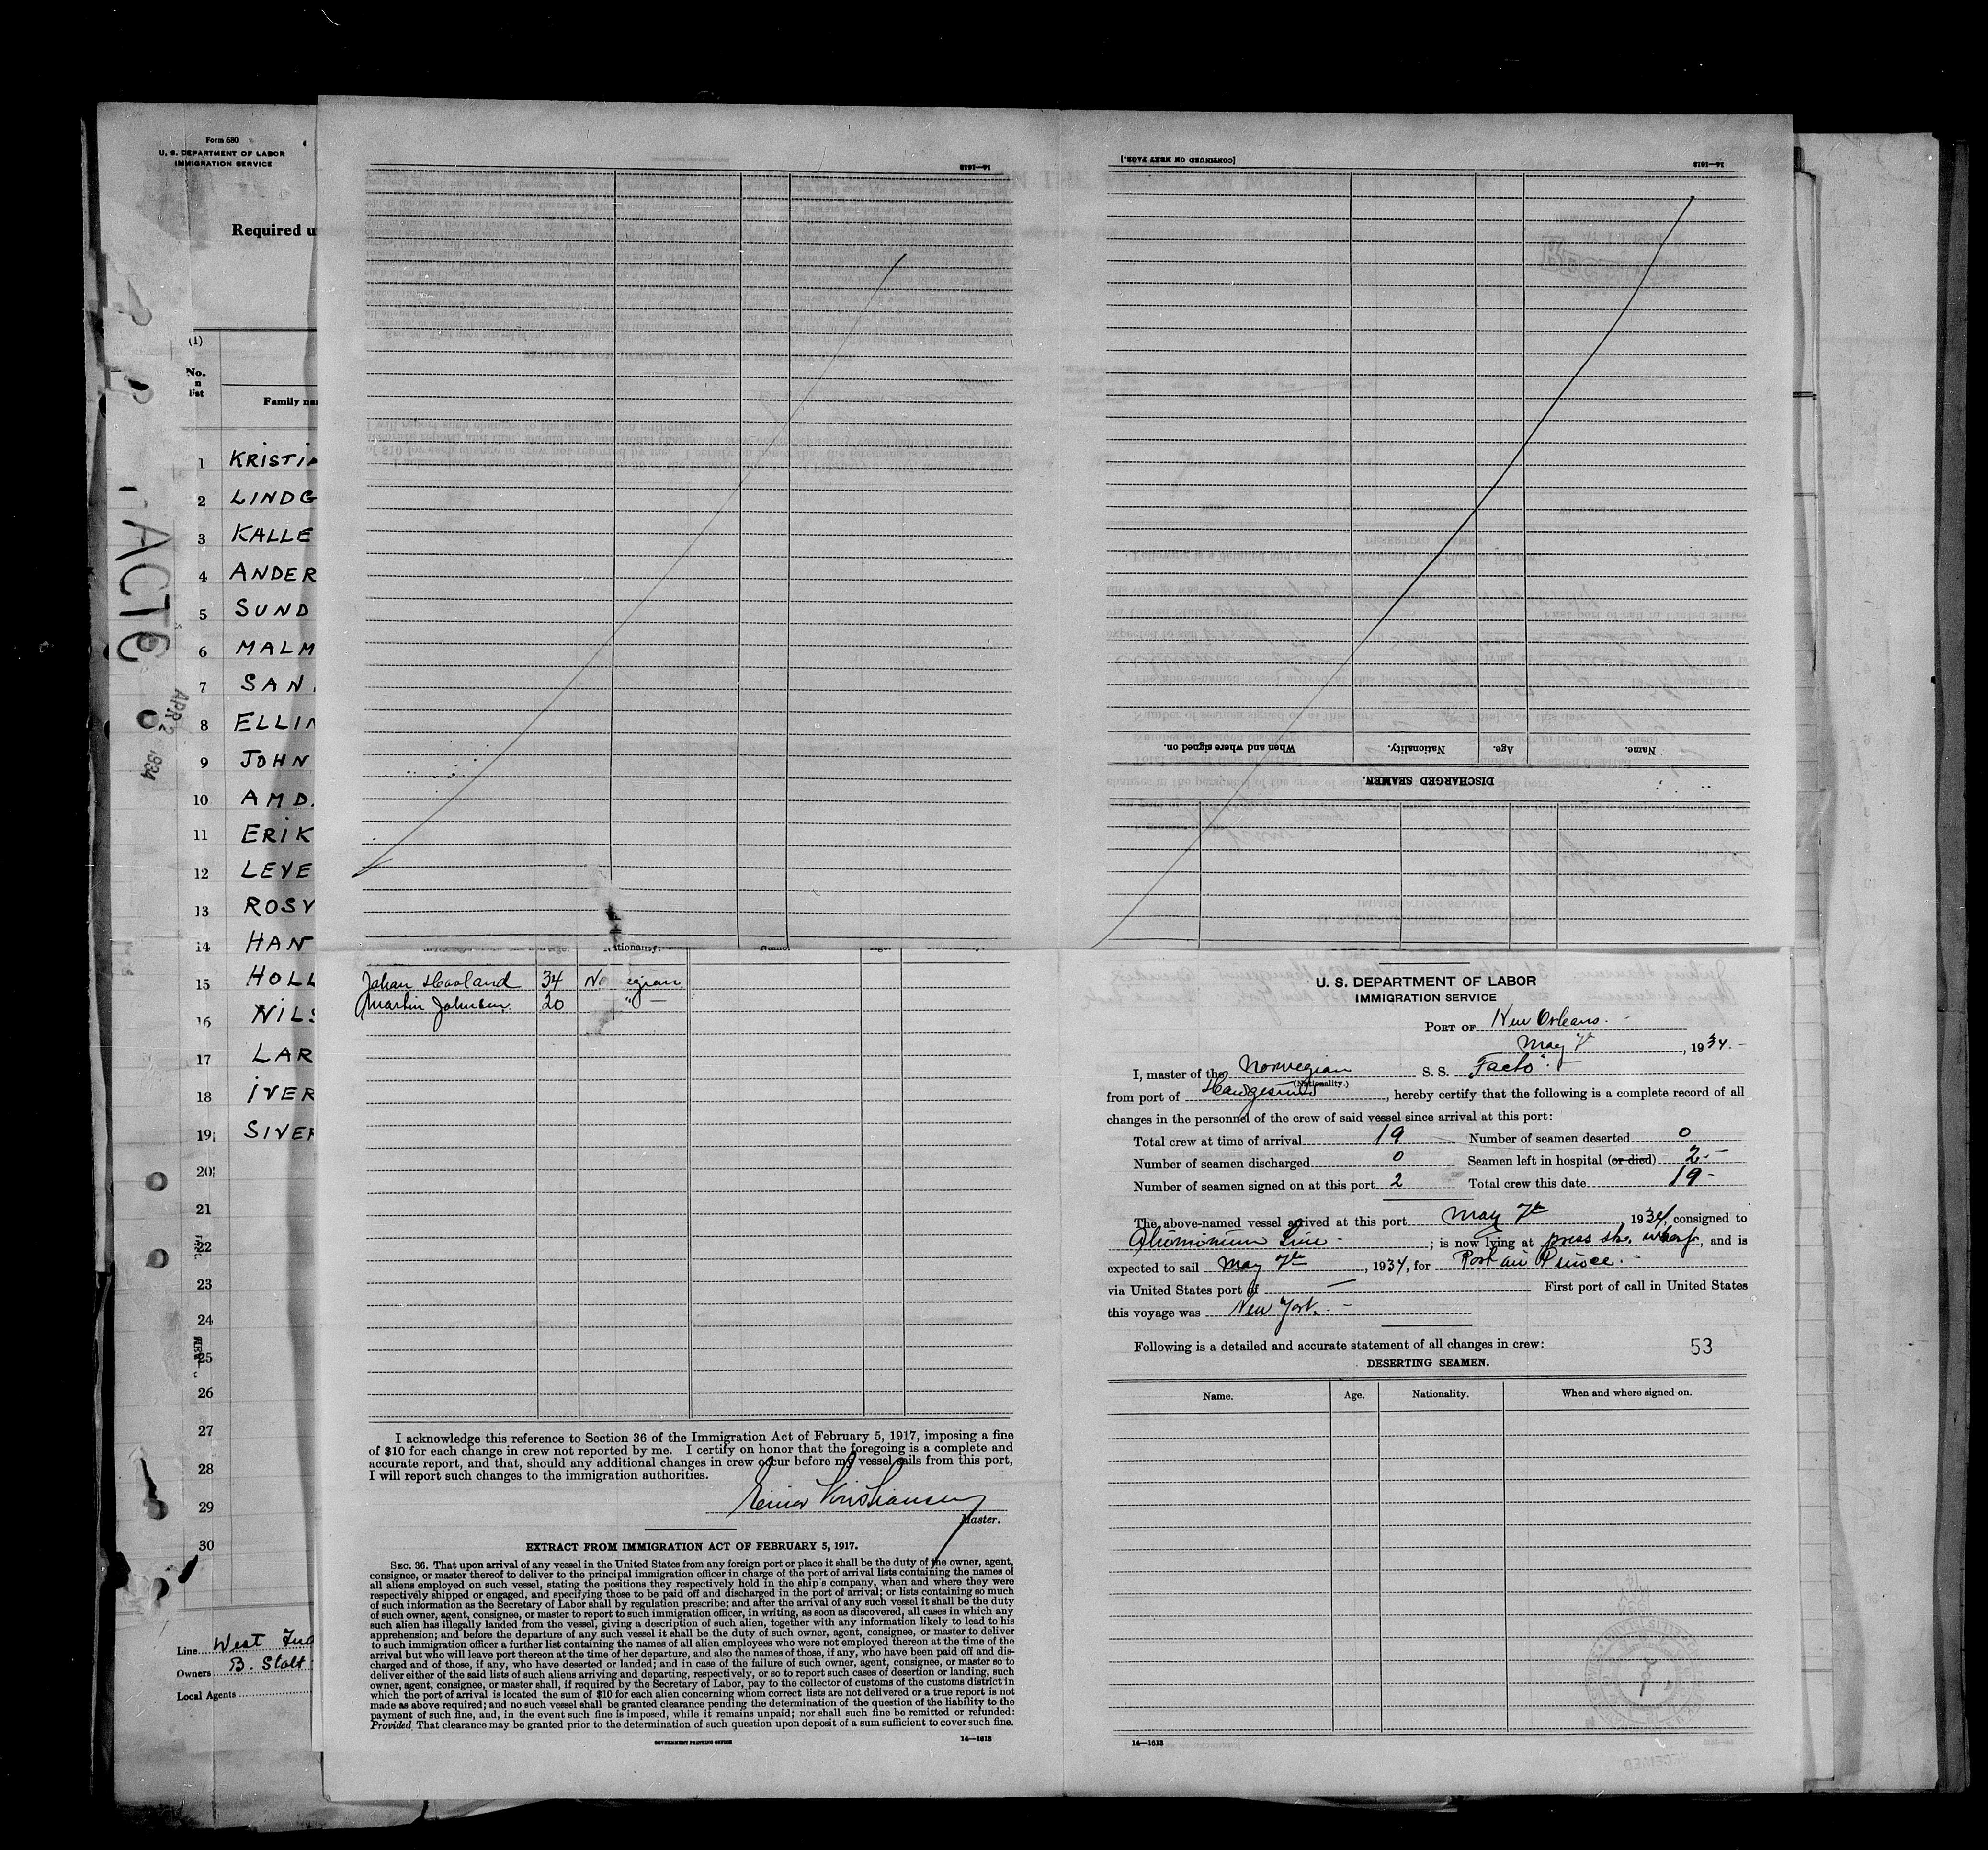 Form 680
U. S. DEPARTMENT OF LABOR
IMMIGRATION SERVICE
Required u
(1)
No.
n
list
Family na
1 KRISTIA
2 LINDG
3 KALLE
4 ANDER
5 SUND
6 MALM
7 SAN
8 ELLIN
9 JOHN
10 AMD
11 ERIK
12 LEVE
13 ROSV
14 HAN
15 HOLL
16 NILS
17 LAR
18 IVER
19 SIVER
20
21
22
23
24
25
26
27
28
29
30
Line West Ind
Owners B. Stolt
Local Agents
ACTE
APR 2 1934
14—1613
[CONTINUED ON NEXT PAGE.]
14—1613
When and where signed on.
Nationality.
Age.
Name.
DISCHARGED SEAMEN.
Johan Haaland 34 No egian
Martin Johnsen. 20 " —
I acknowledge this reference to Section 36 of the Immigration Act of February 5, 1917, imposing a fine
of $10 for each change in crew not reported by me. I certify on honor that the foregoing is a complete and
accurate report, and that, should any additional changes in crew occur before my vessel sails from this port,
I will report such changes to the immigration authorities.
Einar Kristiansen
Master.
EXTRACT FROM IMMIGRATION ACT OF FEBRUARY 5, 1917.
SEC. 36. That upon arrival of any vessel in the United States from any foreign port or place it shall be the duty of the owner, agent,
consignee, or master thereof to deliver to the principal immigration officer in charge of the port of arrival lists containing the names of
all aliens employed on such vessel, stating the positions they respectively hold in the ship's company, when and where they were
respectively shipped or engaged, and specifying those to be paid off and discharged in the port of arrival; or lists containing so much
of such information as the Secretary of Labor shall by regulation prescribe; and after the arrival of any such vessel it shall be the duty
of such owner, agent, consignee, or master to report to such immigration officer, in writing, as soon as discovered, all cases in which any
such alien has illegally landed from the vessel, giving a description of such alien, together with any information likely to lead to his
apprehension; and before the departure of any such vessel it shall be the duty of such owner, agent, consignee, or master to deliver
to such immigration officer a further list containing the names of all alien employees who were not employed thereon at the time of the
arrival but who will leave port thereon at the time of her departure, and also the names of those, if any, who have been paid off and dis-
charged and of those, if any, who have deserted or landed; and in case of the failure of such owner, agent, consignee, or master so to
deliver either of the said lists of such aliens arriving and departing, respectively, or so to report such cases of desertion or landing, such
owner, agent, consignee, or master shall, if required by the Secretary of Labor, pay to the collector of customs of the customs district in
which the port of arrival is located the sum of $10 for each alien concerning whom correct lists are not delivered or a true report is not
made as above required; and no such vessel shall be granted clearance pending the determination of the question of the liability to the
payment of such fine, and, in the event such fine is imposed, while it remains unpaid; nor shall such fine be remitted or refunded:
Provided, That clearance may be granted prior to the determination of such question upon deposit of a sum sufficient to cover such fine.
GOVERNMENT PRINTING OFFICE 14—1613
U. S. DEPARTMENT OF LABOR
IMMIGRATION SERVICE
PORT OF New Orleans.
May 7th, 1934.
I, master of the Norwegian S. S. Facto
(Nationality.)
from port of Haugesund, hereby certify that the following is a complete record of all
changes in the personnel of the crew of said vessel since arrival at this port:
Total crew at time of arrival 19 Number of seamen deserted 0
Number of seamen discharged 0 Seamen left in hospital (or died) 2
Number of seamen signed on at this port 2 Total crew this date 19
The above-named vessel arrived at this port May 7th, 1934, consigned to
Aluminium Line; is now lying at press str. wharf, and is
expected to sail May 7th, 1934, for Port au Prince.
via United States port of — First port of call in United States
this voyage was New York.
Following is a detailed and accurate statement of all changes in crew:
53
DESERTING SEAMEN.
Name. Age. Nationality. When and where signed on.
14—1613